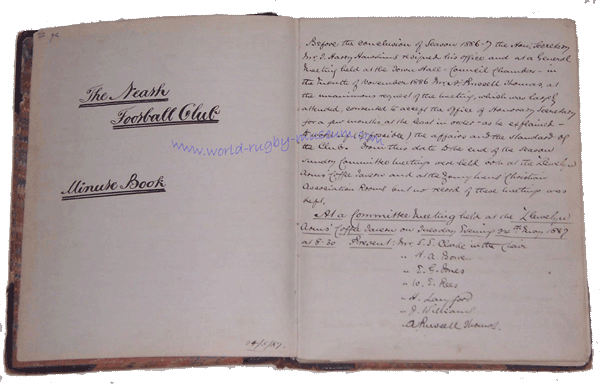 The Neath
Football Club
Minute Book
24/5/87.
www.world-rugby-museum.com
Before the conclusion of Season 1886-7 the Hon. Secretary
Mr. J. Harry Hawkins resigned his office and at a General
Meeting held at the Town Hall - Council Chamber - in
the month of November 1886 Mr. A. Russell Thomas, at
the unanimous request of the meeting, which was largely
attended, consented to accept the office of Honorary Secretary
for a few months at the least in order - as he explained -
to if possible the affairs and the standard of
the Club. From this date to the end of the season
sundry Committee Meetings were held both at the "Llewelyn
Arms" Coffee Tavern and at the Young Mens Christian
Association Rooms but no record of these meetings was
kept.
At a Committee Meeting held at the "Llewelyn
Arms" Coffee Tavern on Tuesday Evening May 1887
at 8.30 Present: Mr. S. S. Clarke in the Chair
" A. Bowe
" E. C. Jones
" W. E. Rees
" H. Langford
" J. Williams
" A. Russell Thomas